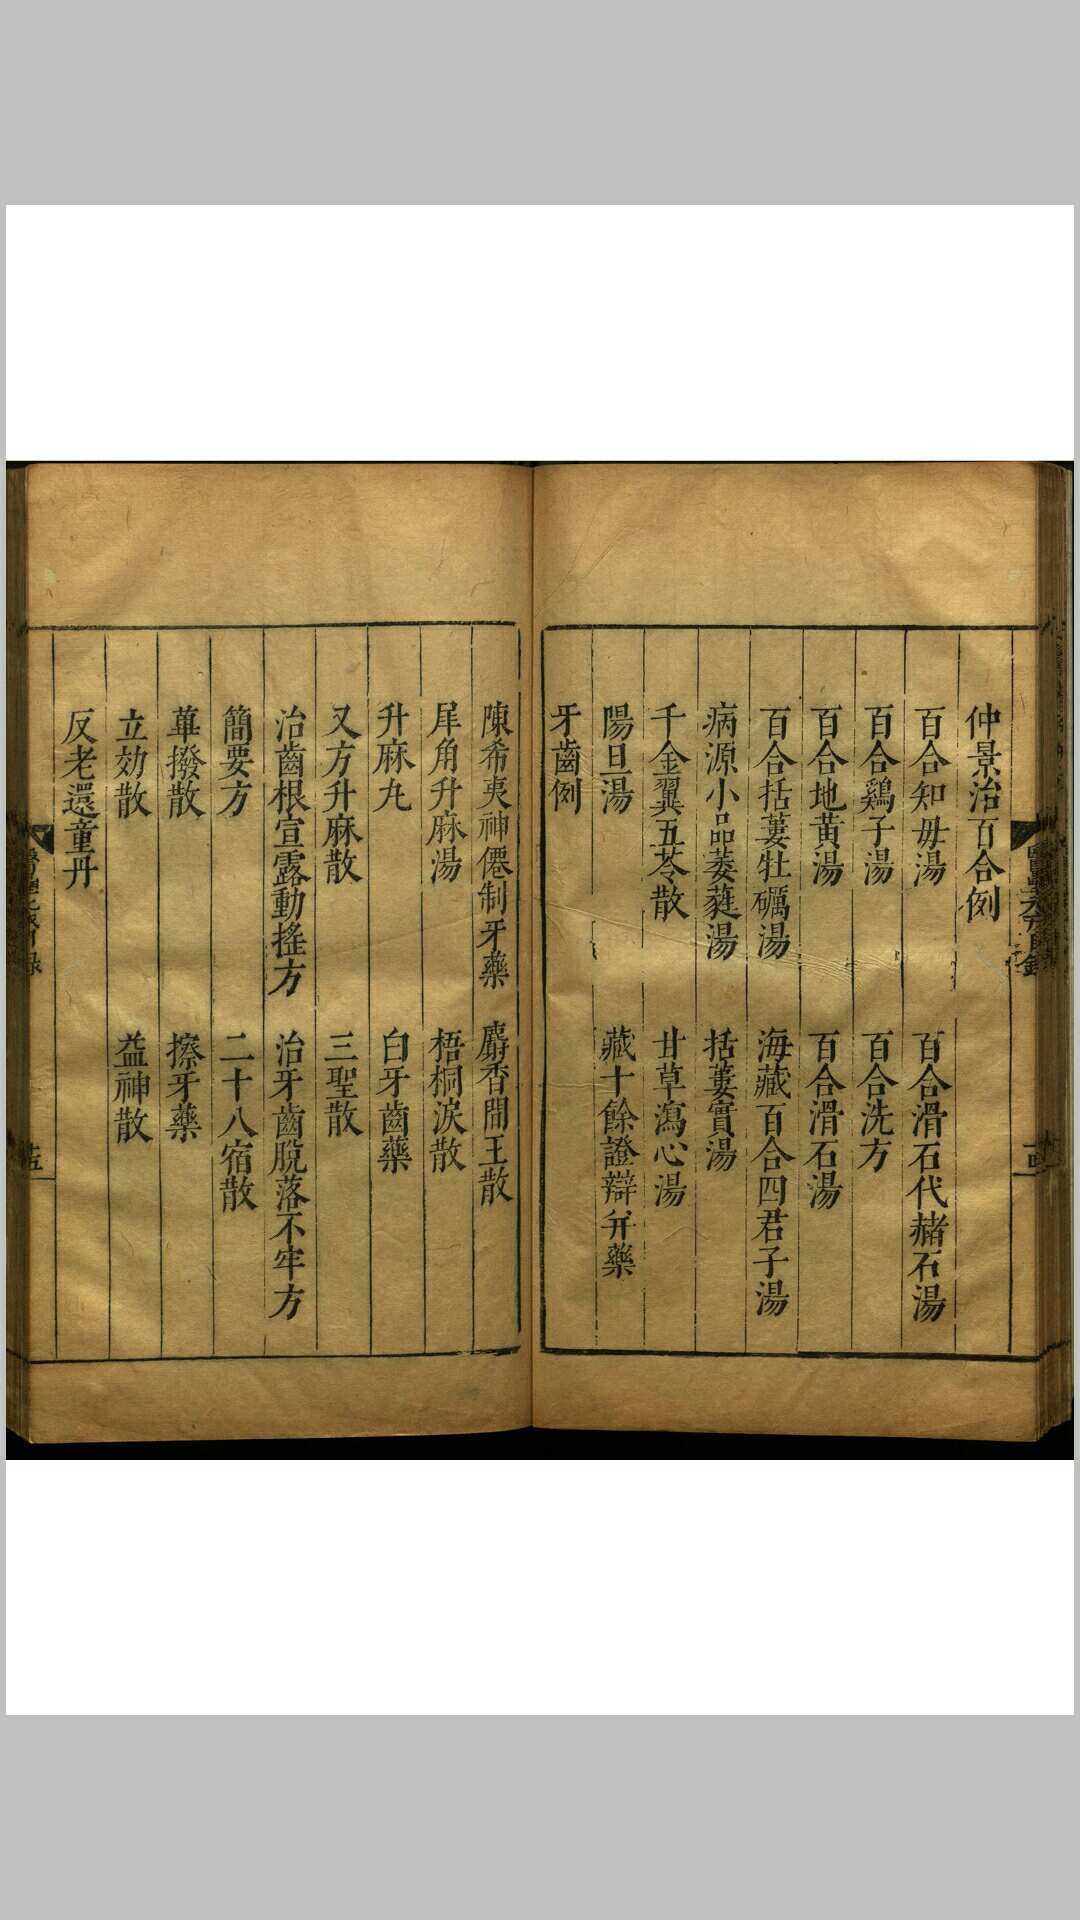 仲景治百合例
百合知母湯　百合滑石代赭石湯
百合鷄子湯　百合洗方
百合地黄湯　百合滑石湯
百合括蔞牡礪湯　海藏百合四君子湯
病源小品萎蕤湯　括蔞實湯
千金翼五苓散　甘草瀉心湯
陽旦湯　藏十餘證辯并藥
牙齒例
陳希夷神僊制牙藥　麝香間王散
犀角升麻湯　梧桐淚散
升麻丸　白牙齒藥
又方升麻散　三聖散
治齒根宣露動搖方　治牙齒脫落不牢方
簡要方　二十八宿散
蓽撥散　擦牙藥
立効散　益神散
反老還童丹